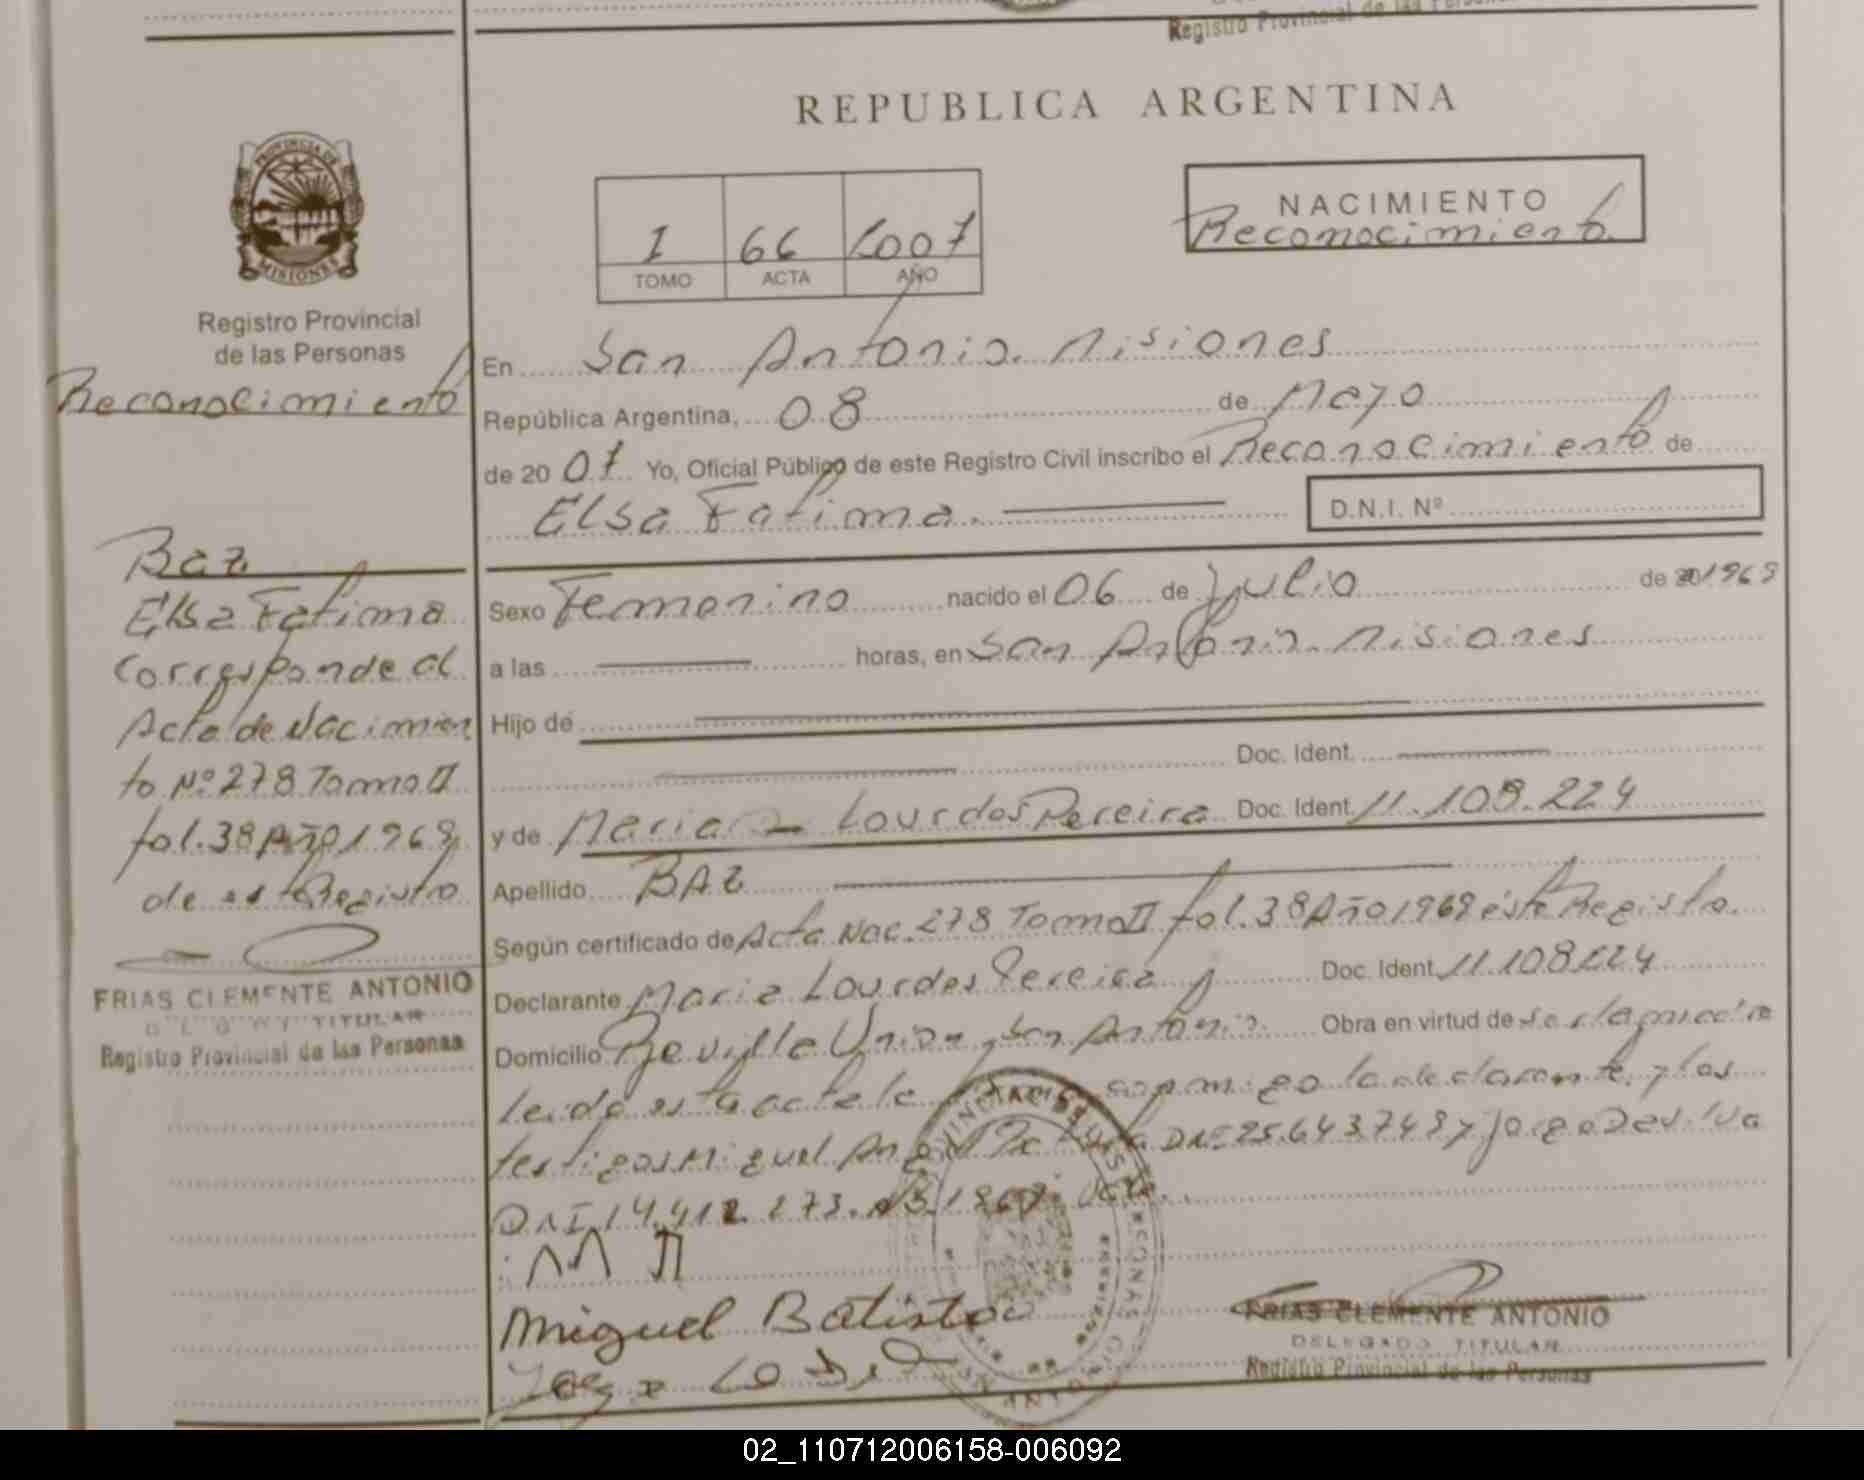 Registro Provincial de las Personas
REPUBLICA ARGENTINA
PROVINCIA DE
MISIONES
Registro Provincial
de las Personas
Reconocimiento
I 66 2007
TOMO ACTA AÑO
NACIMIENTO
Reconocimiento
En San Antonio. Misiones
República Argentina, 08 de Mayo
de 20 07 Yo, Oficial Público de este Registro Civil inscribo el Reconocimiento de
Elsa Fatima. D.N.I. Nº
Sexo Femenino nacido el 06 de Julio de 1969
a las horas, en San Antonio. Misiones
Hijo de
Doc. Ident.
y de Maria Lourdes Pereira Doc. Ident. 11.108.224
Apellido BAZ
Según certificado de Acta Nac. 278 Tomo II fol. 38 Año 1969 éste Registro.
Declarante Maria Lourdes Pereira Doc. Ident. 11.108.224
Domicilio Pje Villa Union, San Antonio. Obra en virtud de
Leida esta acta la conmigo la declarante, y los
testigos Miguel DNI 25.643.749 y Jorge Da Silva
DNI 14.412.273.
Miguel Batista
FRIAS CLEMENTE ANTONIO
DELEGADO TITULAR
Registro Provincial de las Personas
Baz
Elsa Fatima
Corresponde al
Acta de Nacimien
to Nº 278 Tomo II
fol. 38 Año 1969
de este Registro
FRIAS CLEMENTE ANTONIO
TITULAR
Registro Provincial de las Personas
02_110712006158-006092